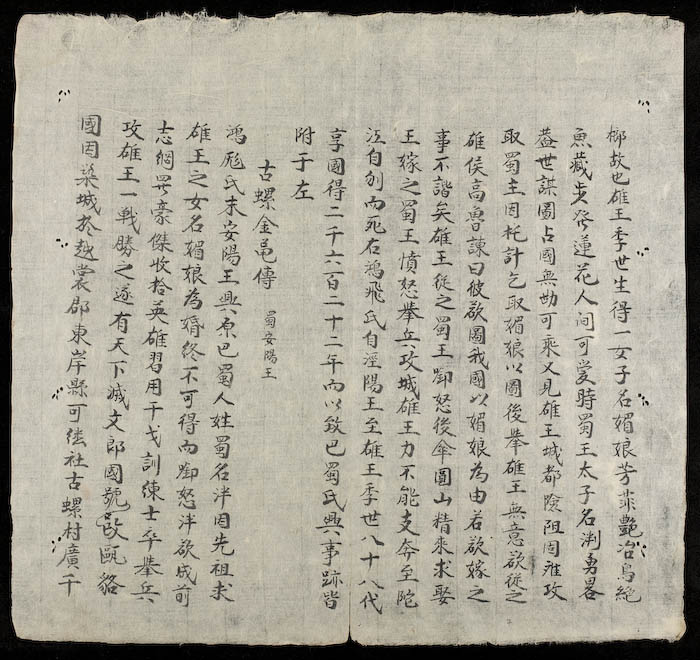 鄉故也雄王季世生得一女子名媚娘芳菲艷冶鳥絶
魚藏步發蓮花人间可爱時蜀王太子名泮勇畧
盖世謀圖占國無劫可乘又見雄王城都險阻固难攻
取蜀主因托計乞取媚狼以圖後舉雄王無意欲從之
雄侯高魯諫曰彼欲圖我國以媚娘為由若欲嫁之
事不諧矣雄王從之蜀王啣怒後傘圓山精来求娶
王嫁之蜀王憤怒舉兵攻城雄王力不能支奔至陀
江自刎而死右鴻飛氏自涇陽王至雄王季世八十八代
享國得二千六百二十二年而以致巴蜀氏興事跡皆
附于左
古螺金黾傳 蜀安陽王
鴻厖氏末安陽王興原巴蜀人姓蜀名泮因先祖求
雄王之女名媚娘為婚终不可得而啣怒泮欲成前
志網罗豪傑收拾英雄習用干戈訓練士卒舉兵
攻雄王一戰勝之遂有天下滅文郎國號改甌貉
國因築城於越裳郡東岸縣可縂社古螺村廣千